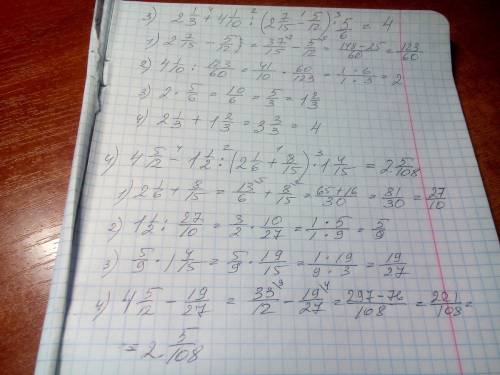 3) 2 1/3 + 4 1/10 : (2 7/15 - 5/12) · 5/6 = 4
1) 2 7/15 - 5/12 = 37/15 - 5/12 = (148-25)/60 = 123/60
2) 4 1/10 : 123/60 = 41/10 · 60/123 = (1·6)/(1·3) = 2
3) 2 · 5/6 = 10/6 = 5/3 = 1 2/3
4) 2 1/3 + 1 2/3 = 3 3/3 = 4
4) 4 5/12 - 1 1/2 : (2 1/6 + 8/15) · 1 4/15 = 2 5/108
1) 2 1/6 + 8/15 = 13/6 + 8/15 = (65+16)/30 = 81/30 = 27/10
2) 1 1/2 : 27/10 = 3/2 · 10/27 = (1·5)/(1·9) = 5/9
3) 5/9 · 1 4/15 = 5/9 · 19/15 = (1·19)/(9·3) = 19/27
4) 4 5/12 - 19/27 = 33/12 - 19/27 = (297-76)/108 = 221/108 =
= 2 5/108